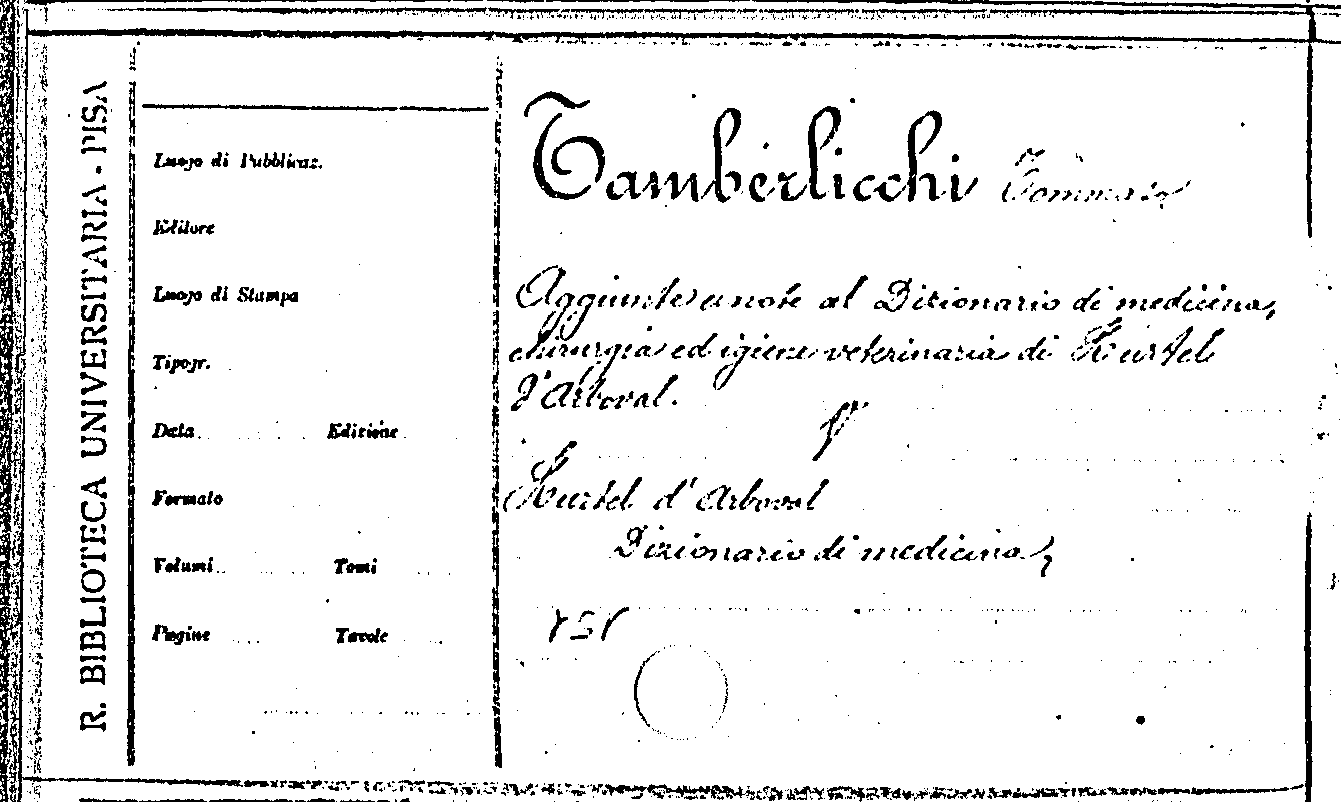 R. BIBLIOTECA UNIVERSITARIA - PISA
Luogo di Pubblicaz.
Editore
Luogo di Stampa
Tipogr.
Data Edizione
Formato
Volumi Tomi
Pagine Tavole
Tamberlicchi Tommaso
Aggiunte e note al Dizionario di medicina,
chirurgia ed igiene veterinaria di Hurtel
d'Arboval.
Hurtel d'Arboval
Dizionario di medicina,